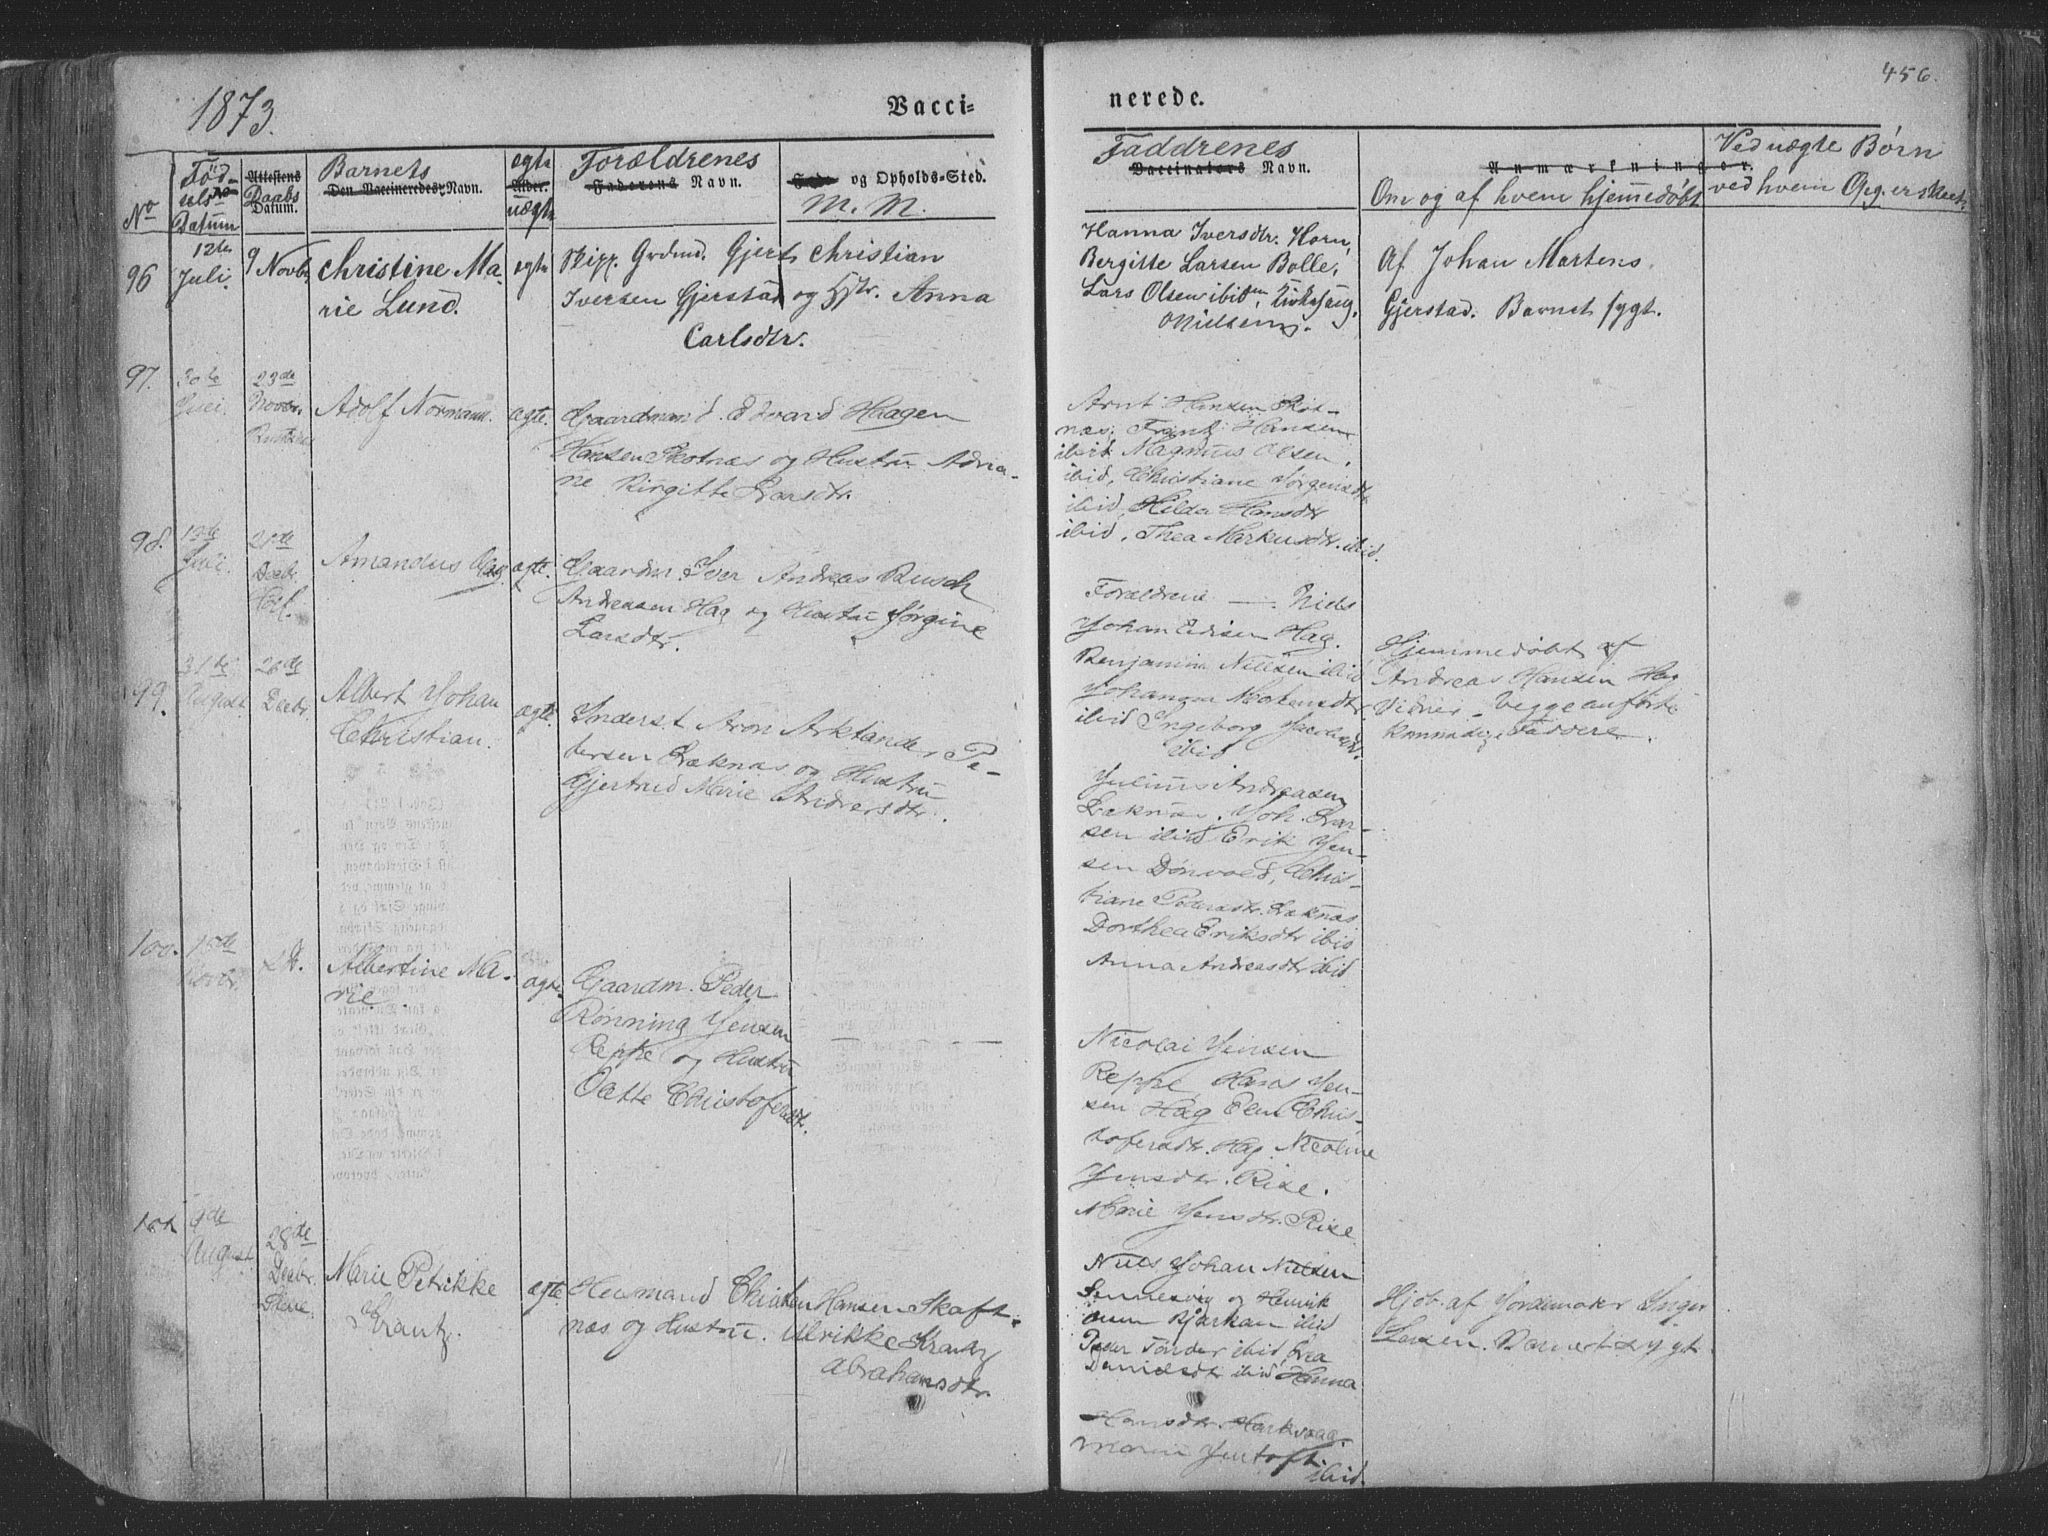 1873.
Vacci-
nerede.
456.
No
Fød-
sels
Datum
Attestens
Daabs
Datum.
Barnets
Den Vaccineredes Navn.
ægte
Alder.
uægte
Forældrenes
Faderens Navn.
og Opholds-Sted.
M. M.
Faddrenes
Vaccinators Navn.
Anmærkninger.
Om og af hvem hjemmedøbt
Ved uægte Børn
ved hvem
96
12te
Juli.
9 Novbr
Christine Ma-
rie Lund.
ægte
Skipp. Grdmd. Gjert Christian
Iversen Gjerstad og Hstr. Anna
Carlsdtr.
Hanna Iversdtr. Horn,
Bergitte Larsen Bolle,
Lars Olsen ibidm,
Nielsen
Af Johan Martens
Gjerstad. Barnet sygt.
97.
30te
Juli.
23de
Novbr.
Adolf Normann.
ægte.
Gaardmand. Edvard Haagen
Hansen Skotnæs og Hustru Adria-
ne Birgitte Larsdtr.
Arnt Hansen Skot-
næs. Frantz Hansen
ibid Magnus Olsen,
ibid, Christiane Jørgensdtr
ibid, Hilda Hansdtr
ibid, Thea Markusdtr. ibid.
98.
Juli.
Decbr.
Hol.
Amandus Hag
ægte.
Gaardm Iver Andreas Busch
Andreasen Hag og Hustru Jørgine
Larsdtr.
Forældrene — Niels
Johan Hag.
Benjamine Nielsen ibid
Johanna
ibid Ingeborg
ibid
Hjemmedøbt af
Andreas Hansen Hag
Vidner. begge anførte
Faddere.
99.
31te
August.
26de
Decbr.
Albert Johan
Christian.
ægte.
Inderst Aron Arktander Pe-
tersen Læknæs og Hustru
Gjertrud Marie Andersdtr.
Julius Andreasen
Læknæs, Joh. Lar-
sen ibid Erik Jen-
sen Dønvold, Chris-
tiane Læknæs
Dorthea Eriksdtr ibid
Anna Andreasdtr ibid
100.
15de
Novbr.
Albertine Ma-
rie.
ægte.
Gaardm. Peder
Rønning Jensen
Reppe og Hustru
Oatte Christofersdtr.
Nicolai Jensen
Reppe Hans Jen-
sen Hag Elen Chris-
tofersdtr. Hag Nicoline
Jensdtr. Rise.
Marie Jensdtr. Rise
101.
9de
August
28de
Decbr.
Marie Petrikke
Krantz.
ægte
Husmand Christian Hansen Skaft-
næs og Hustru. Ulrikke Krantz
Abrahamsdtr.
Niels Johan Nielsen
Sennesvig og Henrik
Bjarkan ibid
Iver Tønder ibid,
Danielsdtr ibid Hanna
Hansdtr.
Jentoft.
ibid.
Hjdb. af Jordemoder Inger
Larsen. Barnet sygt.